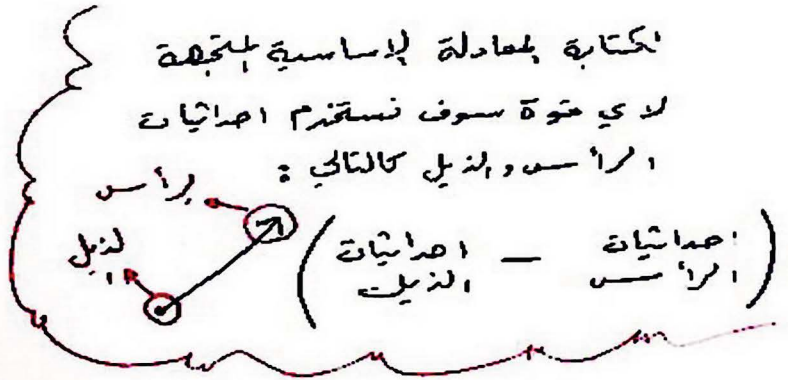 لكتابة المعادلة الاساسية المتجهة
لاي قوة سوف نستخدم احداثيات
الرأس والذيل كالتالي :
الرأس
الذيل
(احداثيات الرأس − احداثيات الذيل)